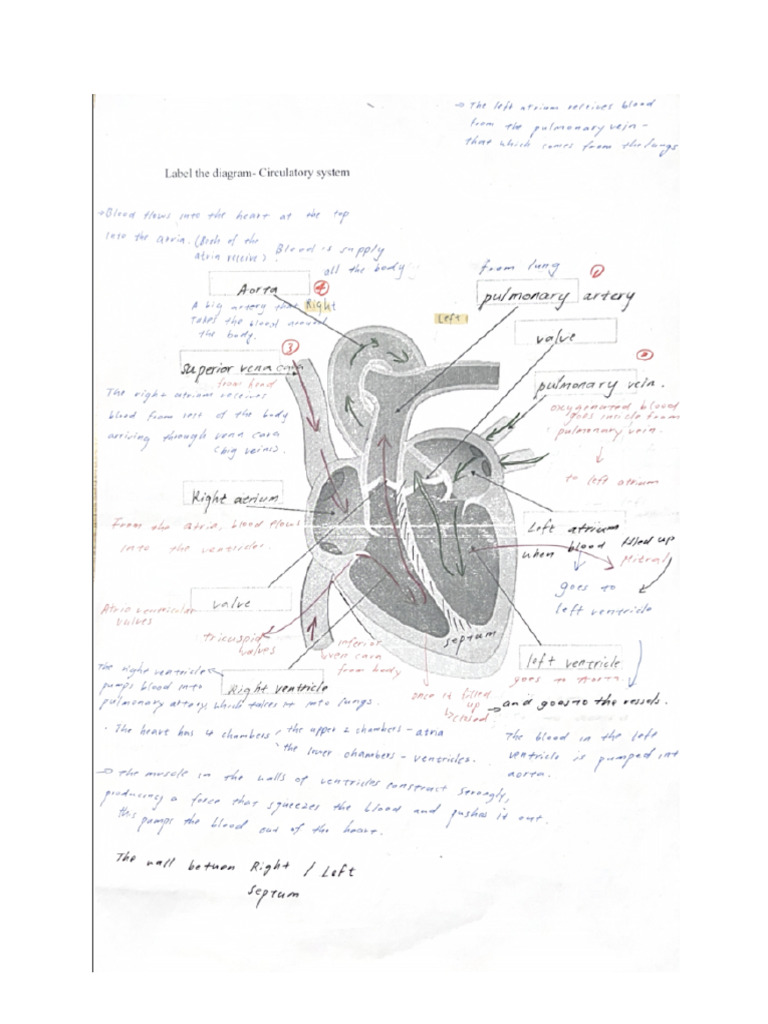 → The left atrium receives blood
from the pulmonary vein -
that which comes from the lungs
Label the diagram- Circulatory system
→ Blood flows into the heart at the top
into the atria. (Both of the
atria receive)
Blood is supply
all the body
Aorta
4
A big artery that
takes the blood around
the body.
Right
Left
from lung
1
pulmonary artery
valve
pulmonary vein.
oxygenated blood
goes inside from
pulmonary vein.
to left atrium
3
superior vena cava
from head
The right atrium receives
blood from rest of the body
arriving through vena cava
(big veins).
Right atrium
From the atria, blood flows
into the ventricles.
Left atrium
when blood filled up
Mitral
goes to
left ventricle
valve
Atrio ventricular
valves
tricuspid
valves
inferior
ven cava
from body
septum
left ventricle
goes to Aorta
and goes to the vessels.
once is filled
up
closed
The right ventricle
pumps blood into
pulmonary artery, which takes it into lungs.
Right ventricle
· The heave has 4 chambers
the upper 2 chambers - atria
the lower chambers - ventricles.
The blood in the left
ventricle is pumped int
aorta.
→ The muscle in the walls of ventricles constract strongly,
producing a force that squeezes the blood and pushes it out.
this pumps the blood out of the heart.
The wall betwen Right / Left
septum